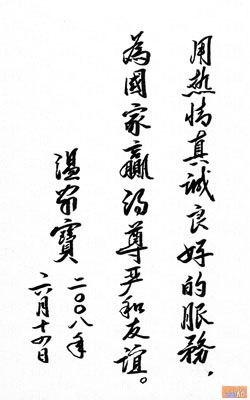 用热情真誠良好的服務，
為國家赢得尊严和友誼。
温家寶
二〇〇八年
六月十四日